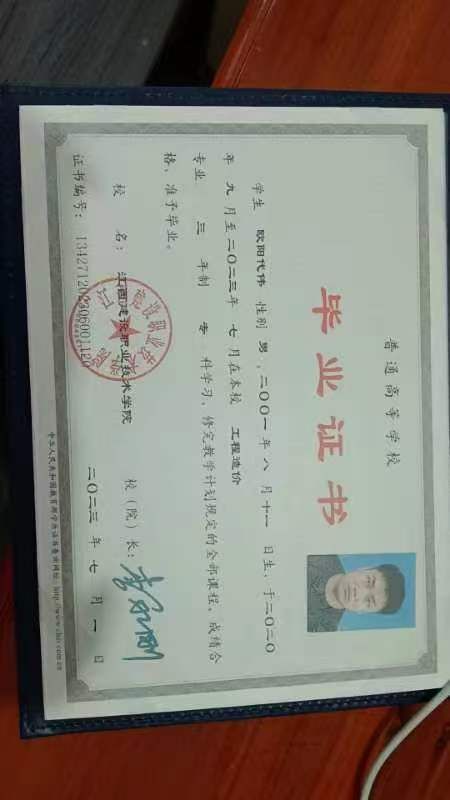 普通高等学校
毕业证书
学生 欧阳代伟 性别 男，二〇〇一年 八 月 十一 日生，于二〇二〇
年 九 月至二〇二三年 七 月在本校 工程造价
专业 三 年制 专 科学习，修完教学计划规定的全部课程，成绩合
格，准予毕业。
校 名：江西建设职业技术学院 校（院）长：
证书编号：134271202306001120 二〇二三 年 七 月 一 日
中华人民共和国教育部学历证书查询网址：http://www.chsi.com.cn